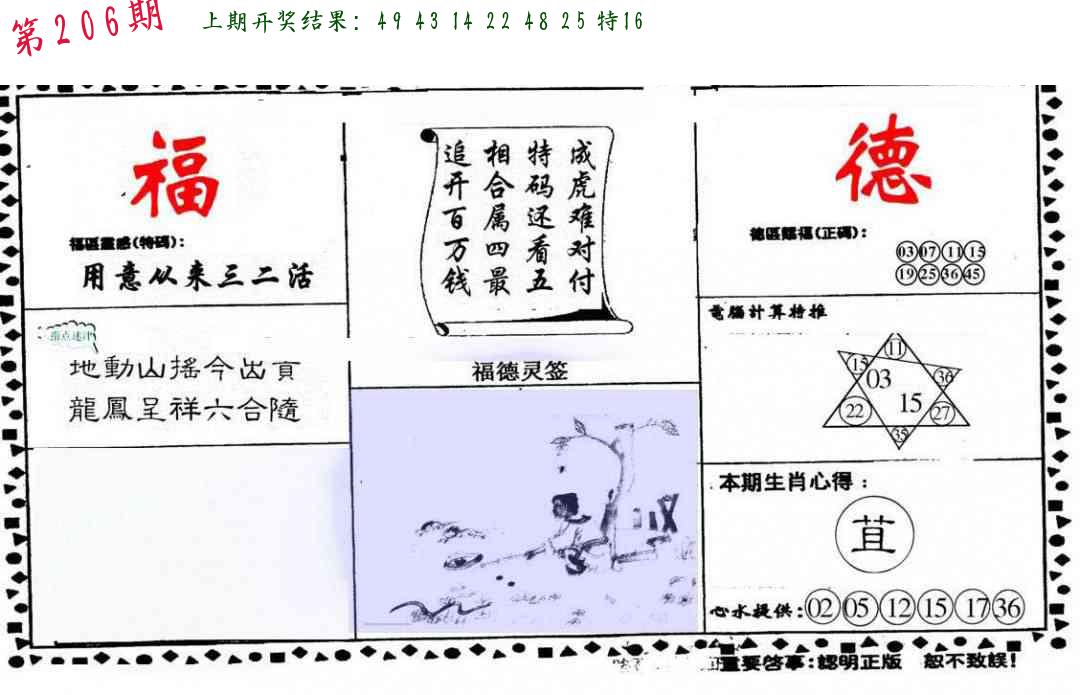 第206期
上期开奖结果: 49 43 14 22 48 25 特16
福
福區靈感(特碼):
用意从来三二活
地動山搖今出頁
龍鳳呈祥六合隨
成虎难对付
特码还看五
相合属四最
追开百万钱
福德灵签
德
德區賜福(正碼):
03 07 11 15
19 25 36 45
電腦計算特推
11
15 36
03 15
22 27
35
本期生肖心得:
苴
心水提供: 02 05 12 15 17 36
重要啓事:認明正版 恕不致誤!